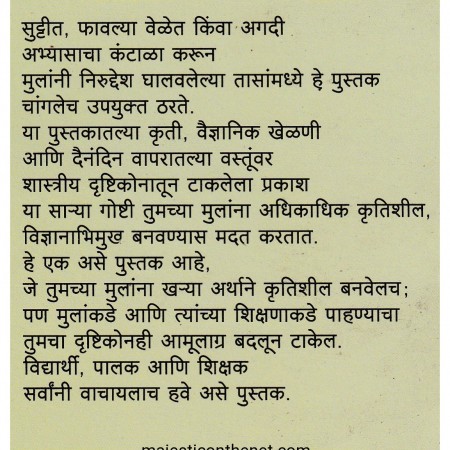 सुट्टीत, फावल्या वेळेत किंवा अगदी
अभ्यासाचा कंटाळा करून
मुलांनी निरुद्देश घालवलेल्या तासांमध्ये हे पुस्तक
चांगलेच उपयुक्त ठरते.
या पुस्तकातल्या कृती, वैज्ञानिक खेळणी
आणि दैनंदिन वापरातल्या वस्तूंवर
शास्त्रीय दृष्टिकोनातून टाकलेला प्रकाश
या साऱ्या गोष्टी तुमच्या मुलांना अधिकाधिक कृतिशील,
विज्ञानाभिमुख बनवण्यास मदत करतात.
हे एक असे पुस्तक आहे,
जे तुमच्या मुलांना खऱ्या अर्थाने कृतिशील बनवेलच;
पण मुलांकडे आणि त्यांच्या शिक्षणाकडे पाहण्याचा
तुमचा दृष्टिकोनही आमूलाग्र बदलून टाकेल.
विद्यार्थी, पालक आणि शिक्षक
सर्वांनी वाचायलाच हवे असे पुस्तक.
majesticonthenet.com